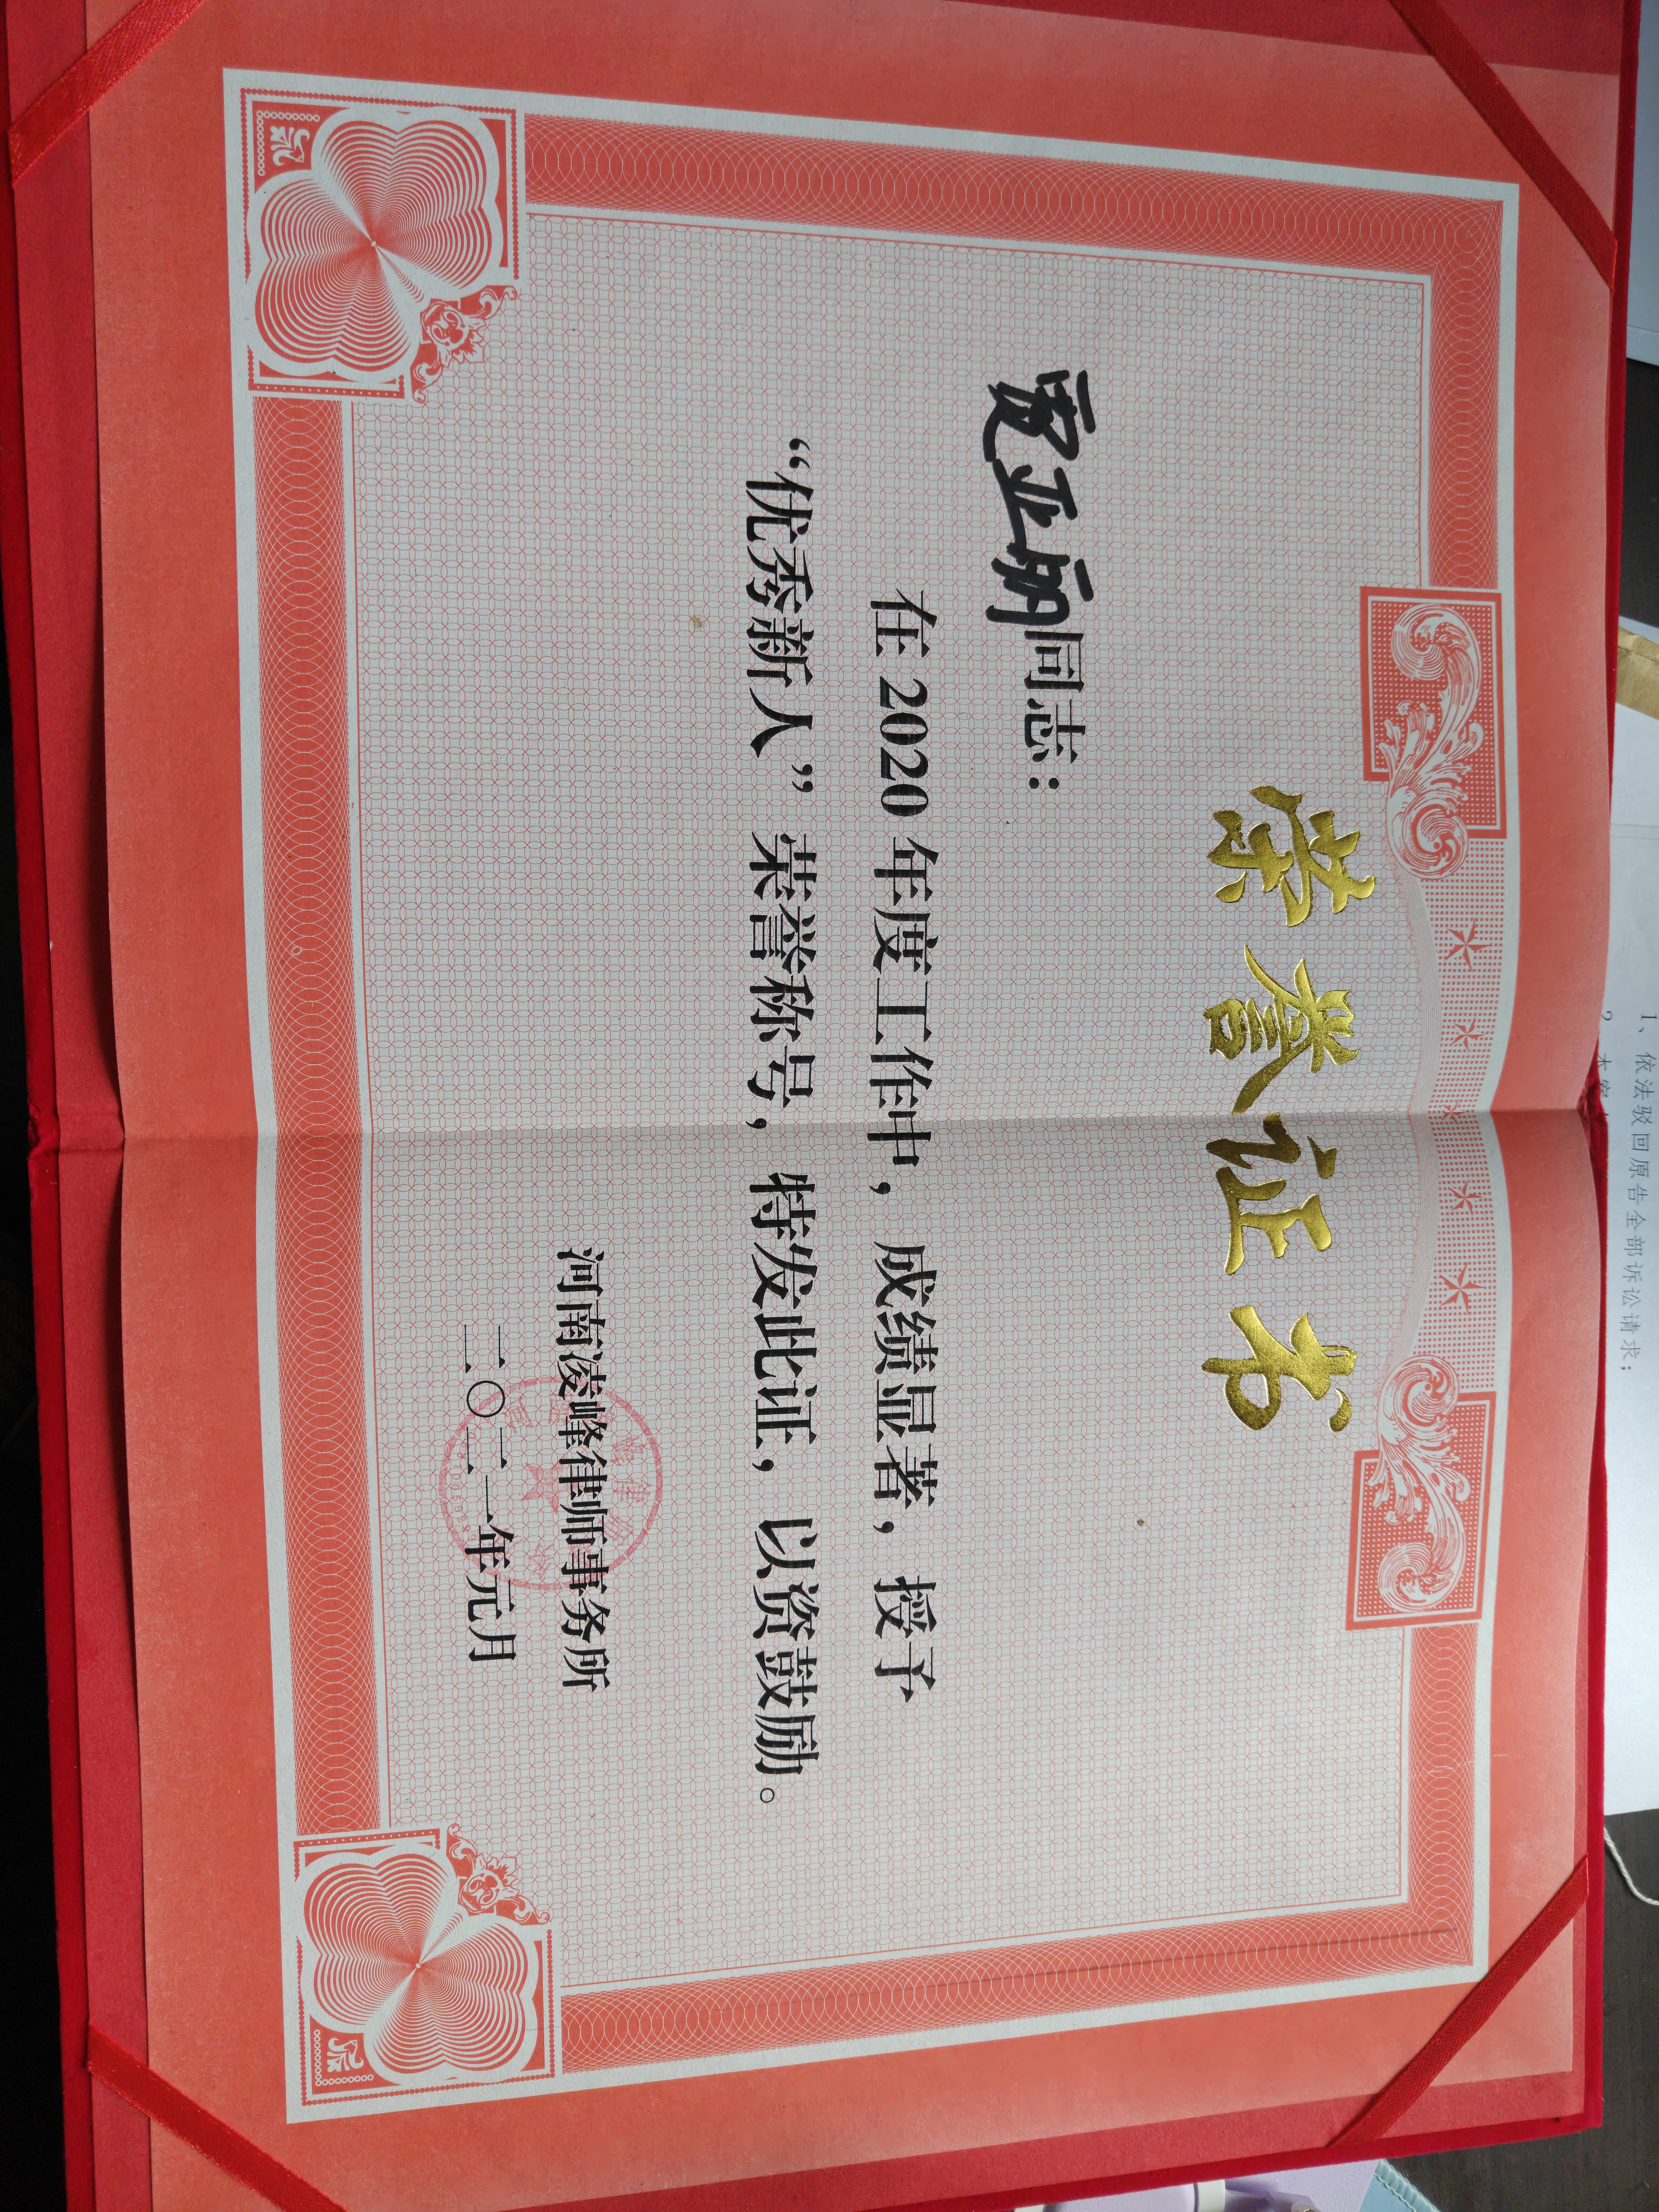 荣誉证书
寇亚丽同志：
在 2020 年度工作中，成绩显著，授予
“优秀新人”荣誉称号，特发此证，以资鼓励。
河南凌峰律师事务所
二〇二一年元月
1、依法驳回原告全部诉讼请求；